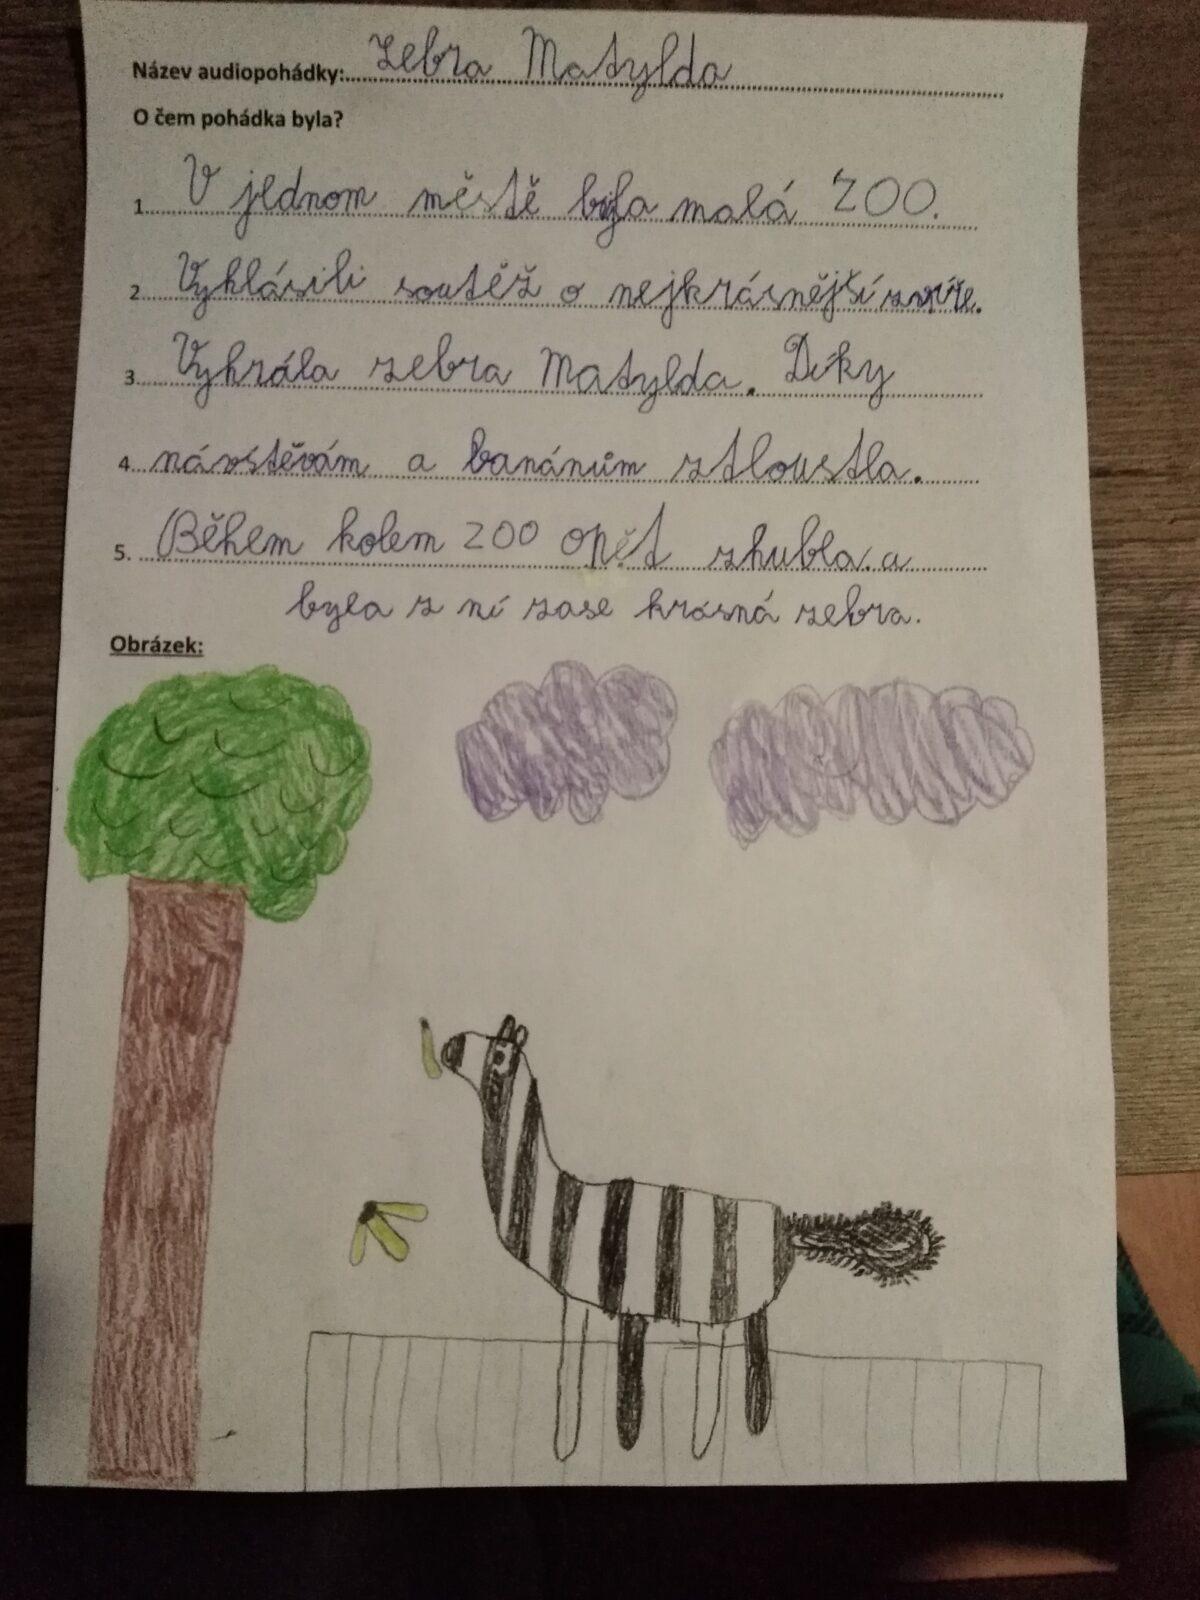 Název audiopohádky: Zebra Matylda
O čem pohádka byla?
1. V jednom městě byla malá ZOO.
2. Vyhlásili soutěž o nejkrásnější zvíře.
3. Vyhrála zebra Matylda. Díky
4. návštěvám a banánům ztloustla.
5. Během kolem ZOO opět zhubla. a
byla z ní zase krásná zebra.
Obrázek: